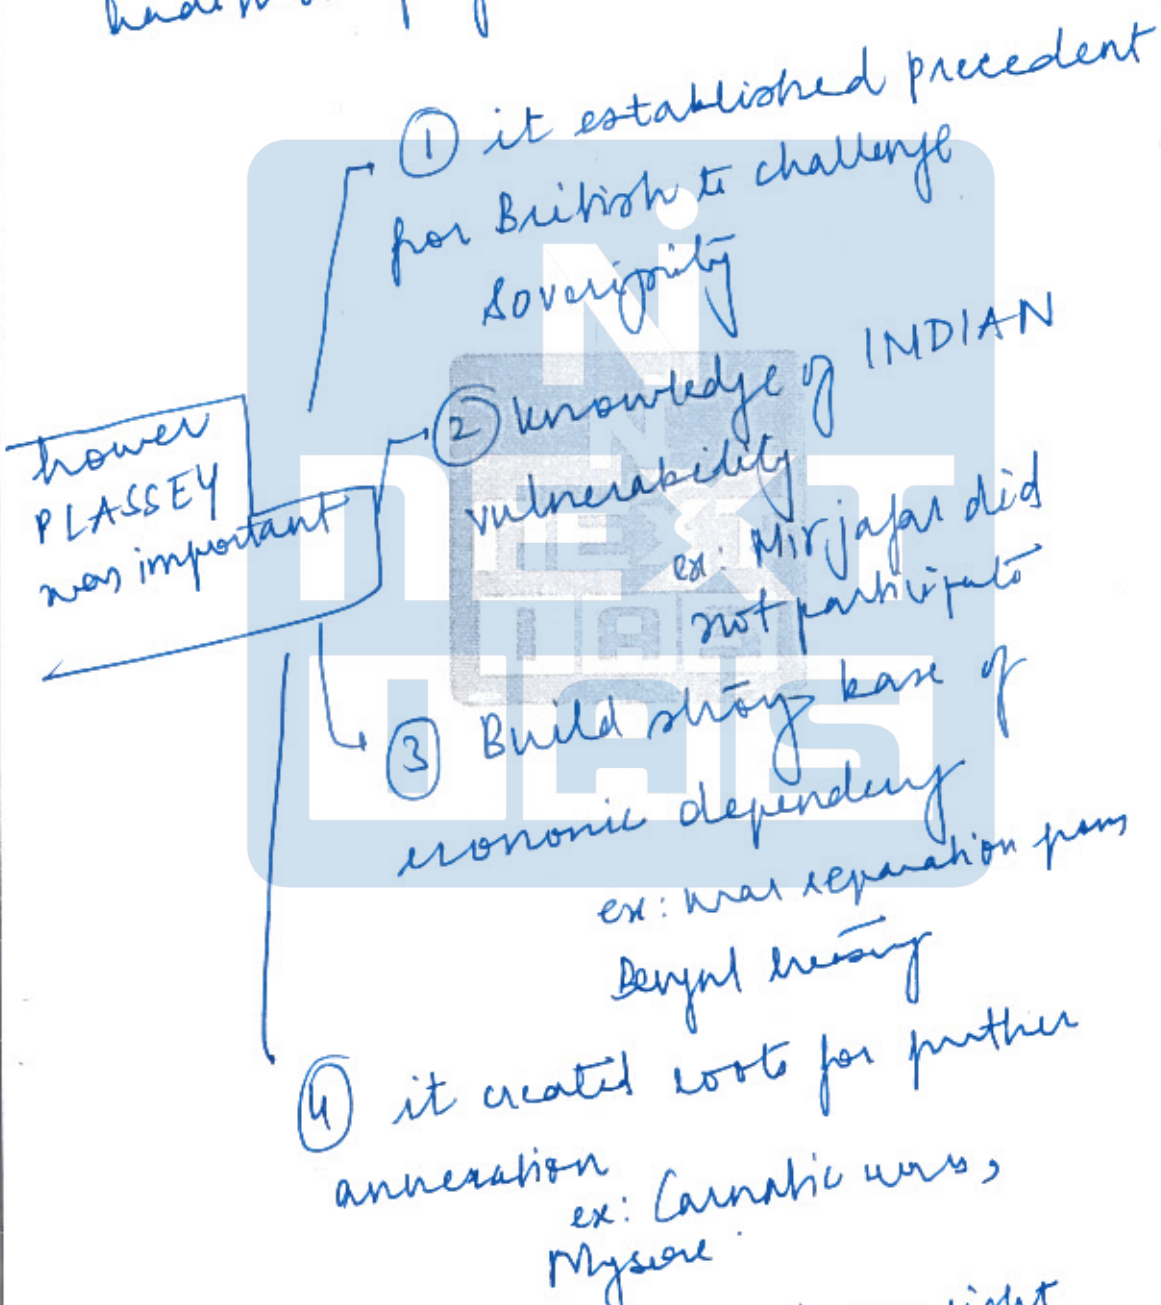 ① it established precedent
for British to challenge
soverignity
② knowledge of INDIAN
vulnerability
ex: Mir jafar did
not participate
hower
PLASSEY
was important
③ Build strong base of
economic dependency
ex: war reparation from
Bengal treasury
④ it created roots for further
annexation
ex: Carnatic wars,
Mysore
NEXT
IAS